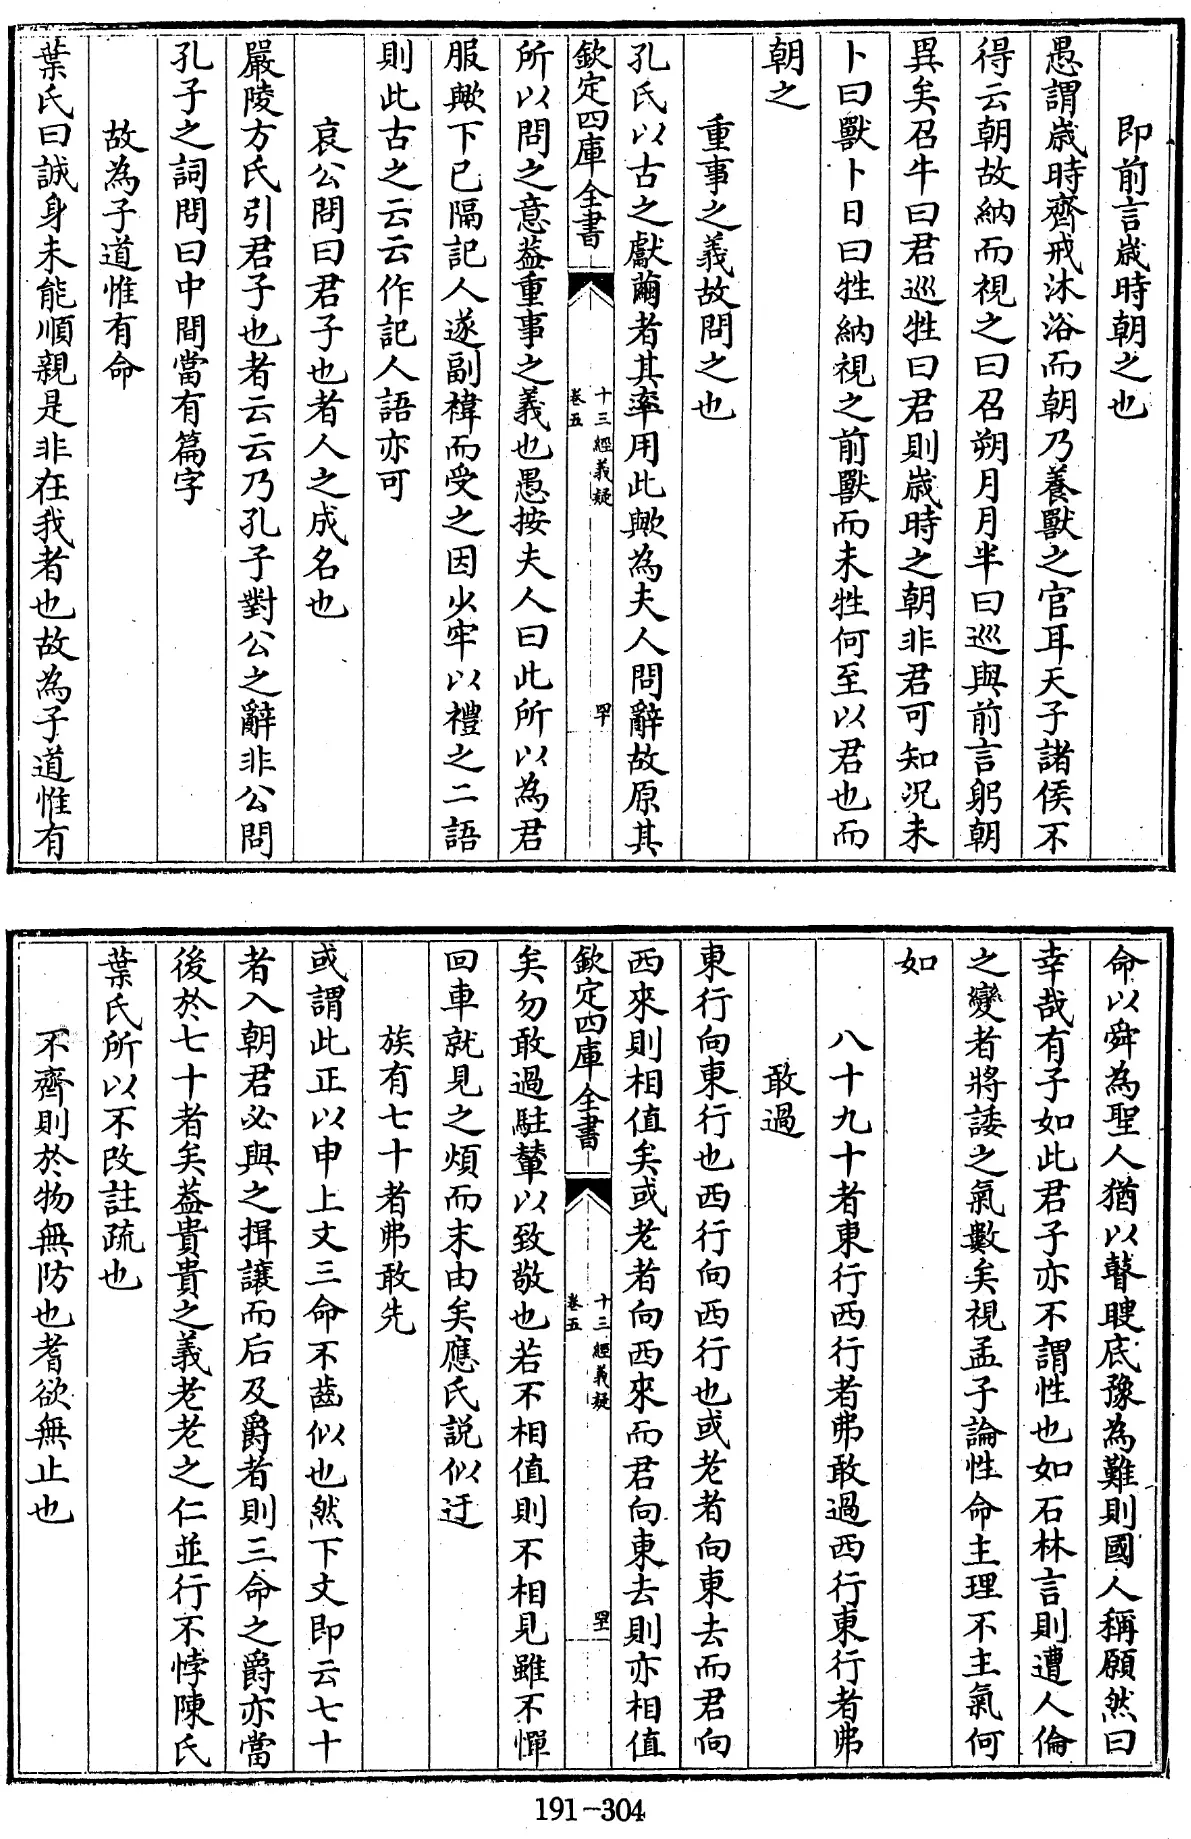 即前言嵗時朝之也
愚謂嵗時齊戒沐浴而朝乃養獸之官耳天子諸侯不
得云朝故納而視之曰召朔月月半曰巡與前言躬朝
異矣召牛曰君巡牲曰君則嵗時之朝非君可知况未
卜曰獸卜日曰牲納視之前獸而未牲何至以君也而
朝之
重事之義故問之也
孔氏以古之獻繭者其率用此歟為夫人問辭故原其
欽定四庫全書
十三經義疑
卷五
罕
所以問之意葢重事之義也愚按夫人曰此所以為君
服歟下已隔記人遂副褘而受之因少牢以禮之二語
則此古之云云作記人語亦可
哀公問曰君子也者人之成名也
嚴陵方氏引君子也者云云乃孔子對公之辭非公問
孔子之詞問曰中間當有篇字
故為子道惟有命
葉氏曰誠身未能順親是非在我者也故為子道惟有
命以舜為聖人猶以瞽瞍底豫為難則國人稱願然曰
幸哉有子如此君子亦不謂性也如石林言則遭人倫
之變者將諉之氣數矣視孟子論性命主理不主氣何
如
八十九十者東行西行者弗敢過西行東行者弗
敢過
東行向東行也西行向西行也或老者向東去而君向
西來則相值矣或老者向西來而君向東去則亦相值
欽定四庫全書
十三經義疑
卷五
矣勿敢過駐輦以致敬也若不相值則不相見雖不憚
回車就見之煩而末由矣應氏説似迂
族有七十者弗敢先
或謂此正以申上文三命不齒似也然下文即云七十
者入朝君必與之揖讓而后及爵者則三命之爵亦當
後於七十者矣葢貴貴之義老老之仁並行不悖陳氏
葉氏所以不改註疏也
不齊則於物無防也耆欲無止也
191-304